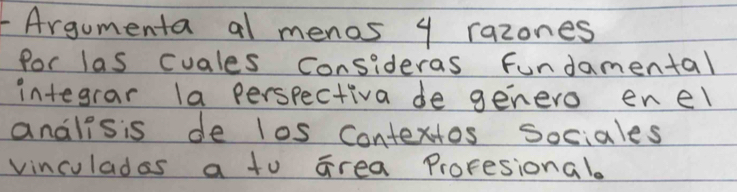 - Argumenta al menos 4 razones
Por las cuales consideras fundamental
integrar la perspectiva de género en el
análisis de los contextos sociales
vinculados a tu área Profesional.